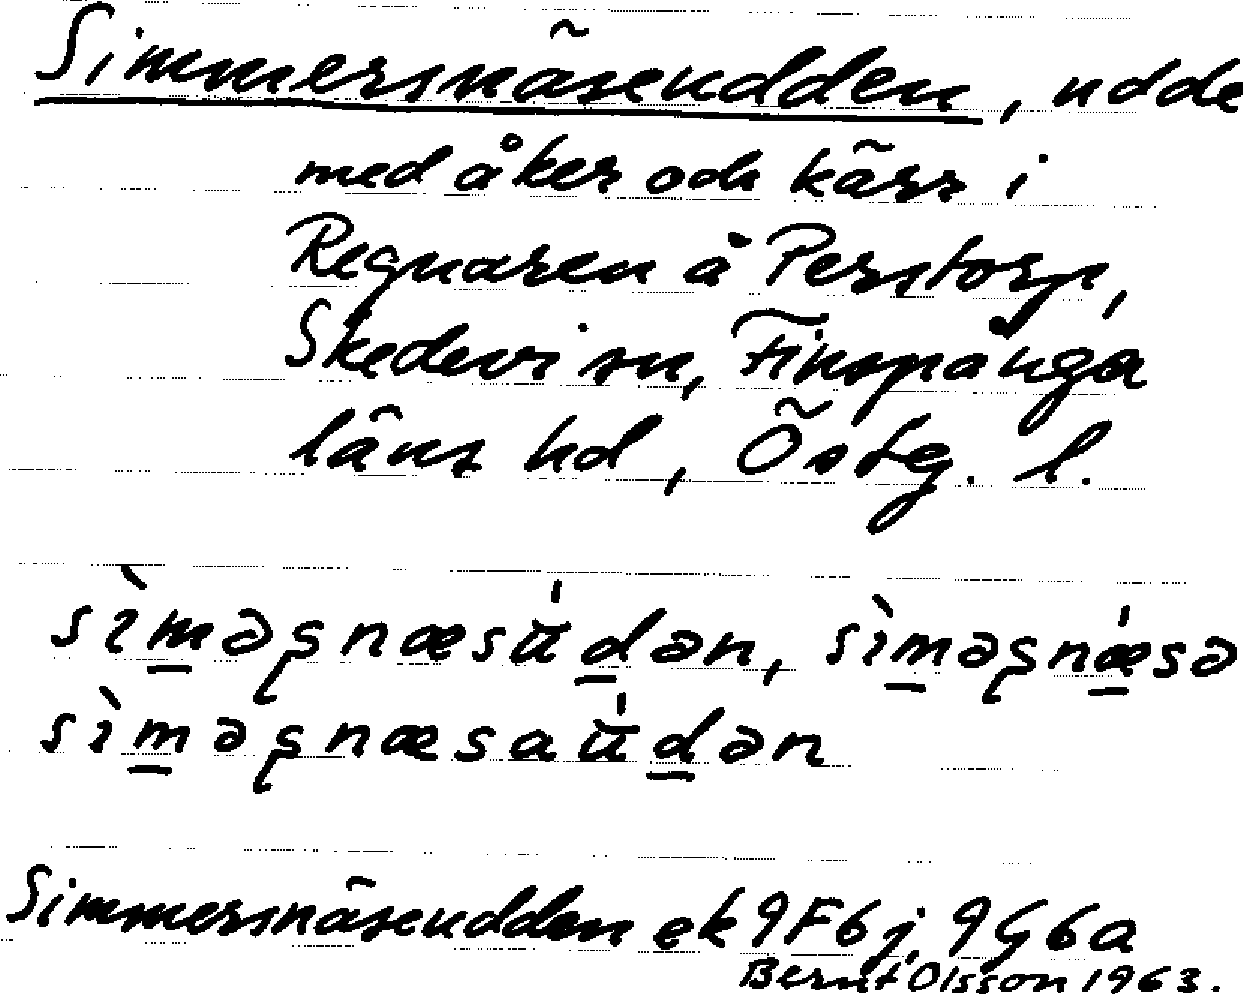 Simmersnäsudden, udde
med åker och kärr i
Regnaren å Perstorp,
Skedevi sn, Finspånga
läns hd, Östg. l.
sìm̲əʂnæsu̇́d̲ən, sìm̲əʂnǽ̲sə
sìm̲əʂnæsau̇́d̲ən
Simmersnäseudden ek 9F6j, 9G6a
Bernt Olsson 1963.